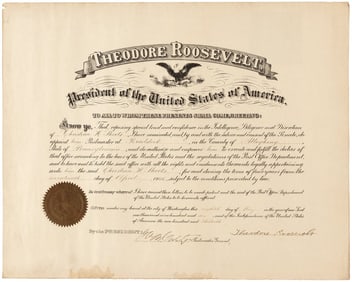 THEODORE ROOSEVELT,
President of the United States of America.
TO ALL TO WHOM THESE PRESENTS SHALL COME, GREETING:
Know ye, That, reposing special trust and confidence in the Intelligence, Diligence and Discretion
of I have nominated by and with the advice and consent of the Senate, do
appoint him Postmaster at in the County of
State of and do authorize and empower to execute and fulfil the duties of
that office according to the laws of the United States and the regulations of the Post Office Department
and to have and to hold the said office with all the rights and emoluments thereunto legally appertaining
unto him the said for and during the term of four years from the
day of subject to the conditions prescribed by law.
In testimony whereof I have caused these letters to be made patent and the seal of the Post Office Department
of the United States to be hereunto affixed.
Given under my hand at the city of Washington the day of in the year of our Lord
one thousand nine hundred and and of the Independence of the United States
of America the one hundred and
By the PRESIDENT: Postmaster General.
Theodore Roosevelt